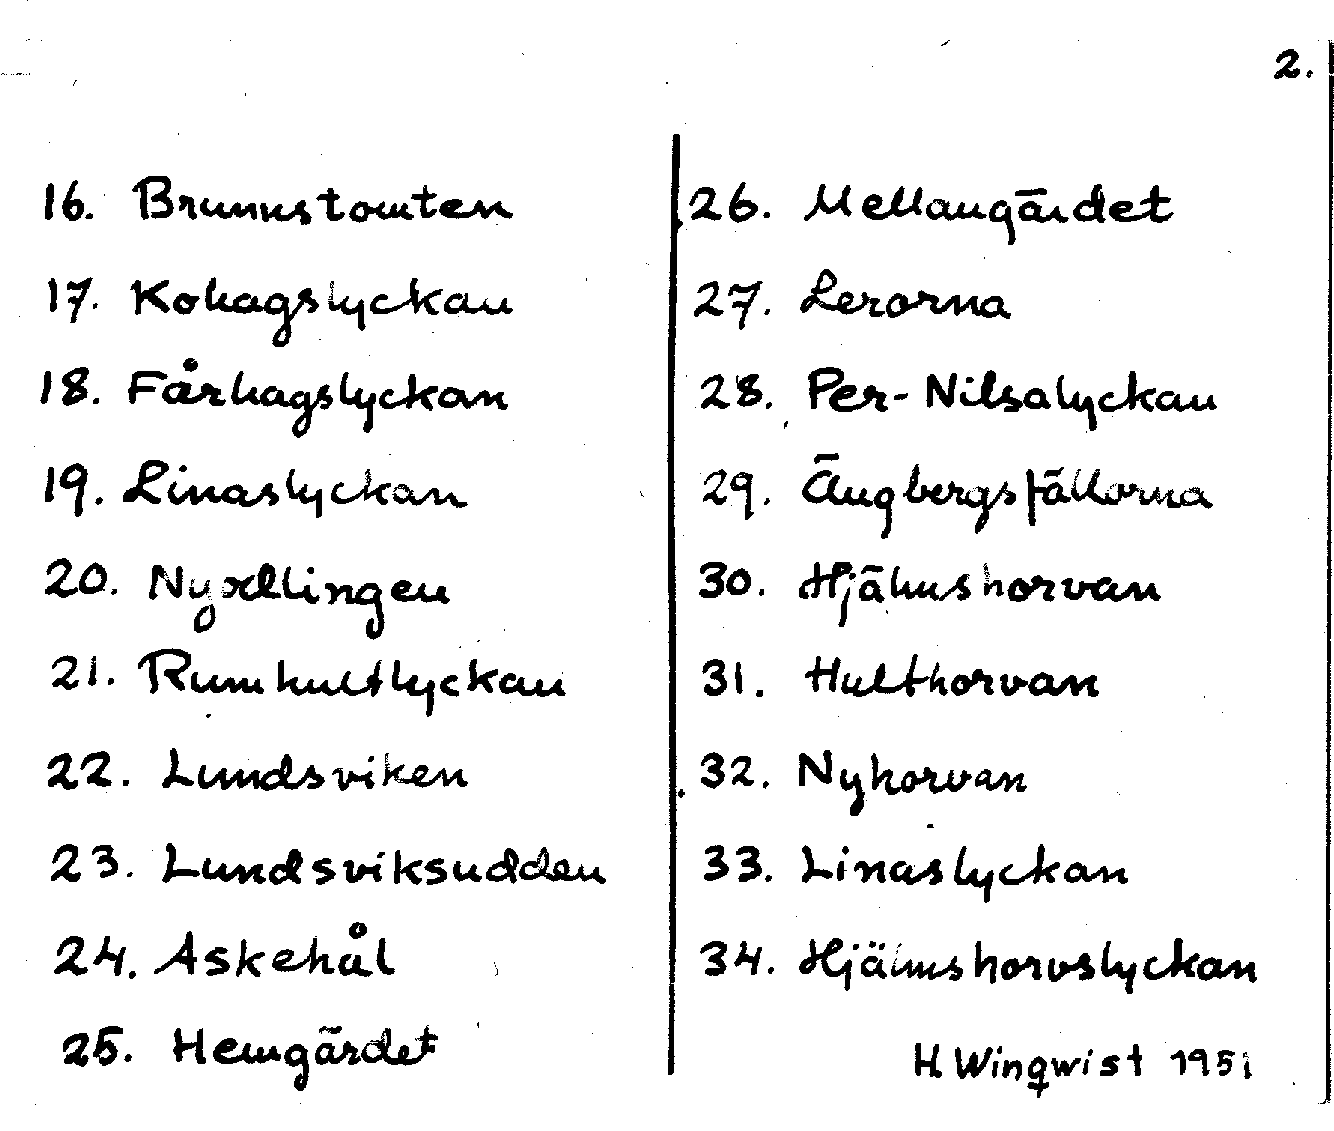 2.
16. Brunnstomten
17. Kohagslyckan
18. Fårhagslyckan
19. Linaslyckan
20. Nyodlingen
21. Rumhultlyckan
22. Lundsviken
23. Lundsviksudden
24. Askehål
25. Hemgärdet
26. Mellangärdet
27. Lerorna
28. Per-Nilsalyckan
29. Ängbergsfällorna
30. Hjälmshorvan
31. Hulthorvan
32. Nyhorvan
33. Linaslyckan
34. Hjälmshorvslyckan
H. Winqwist 1951